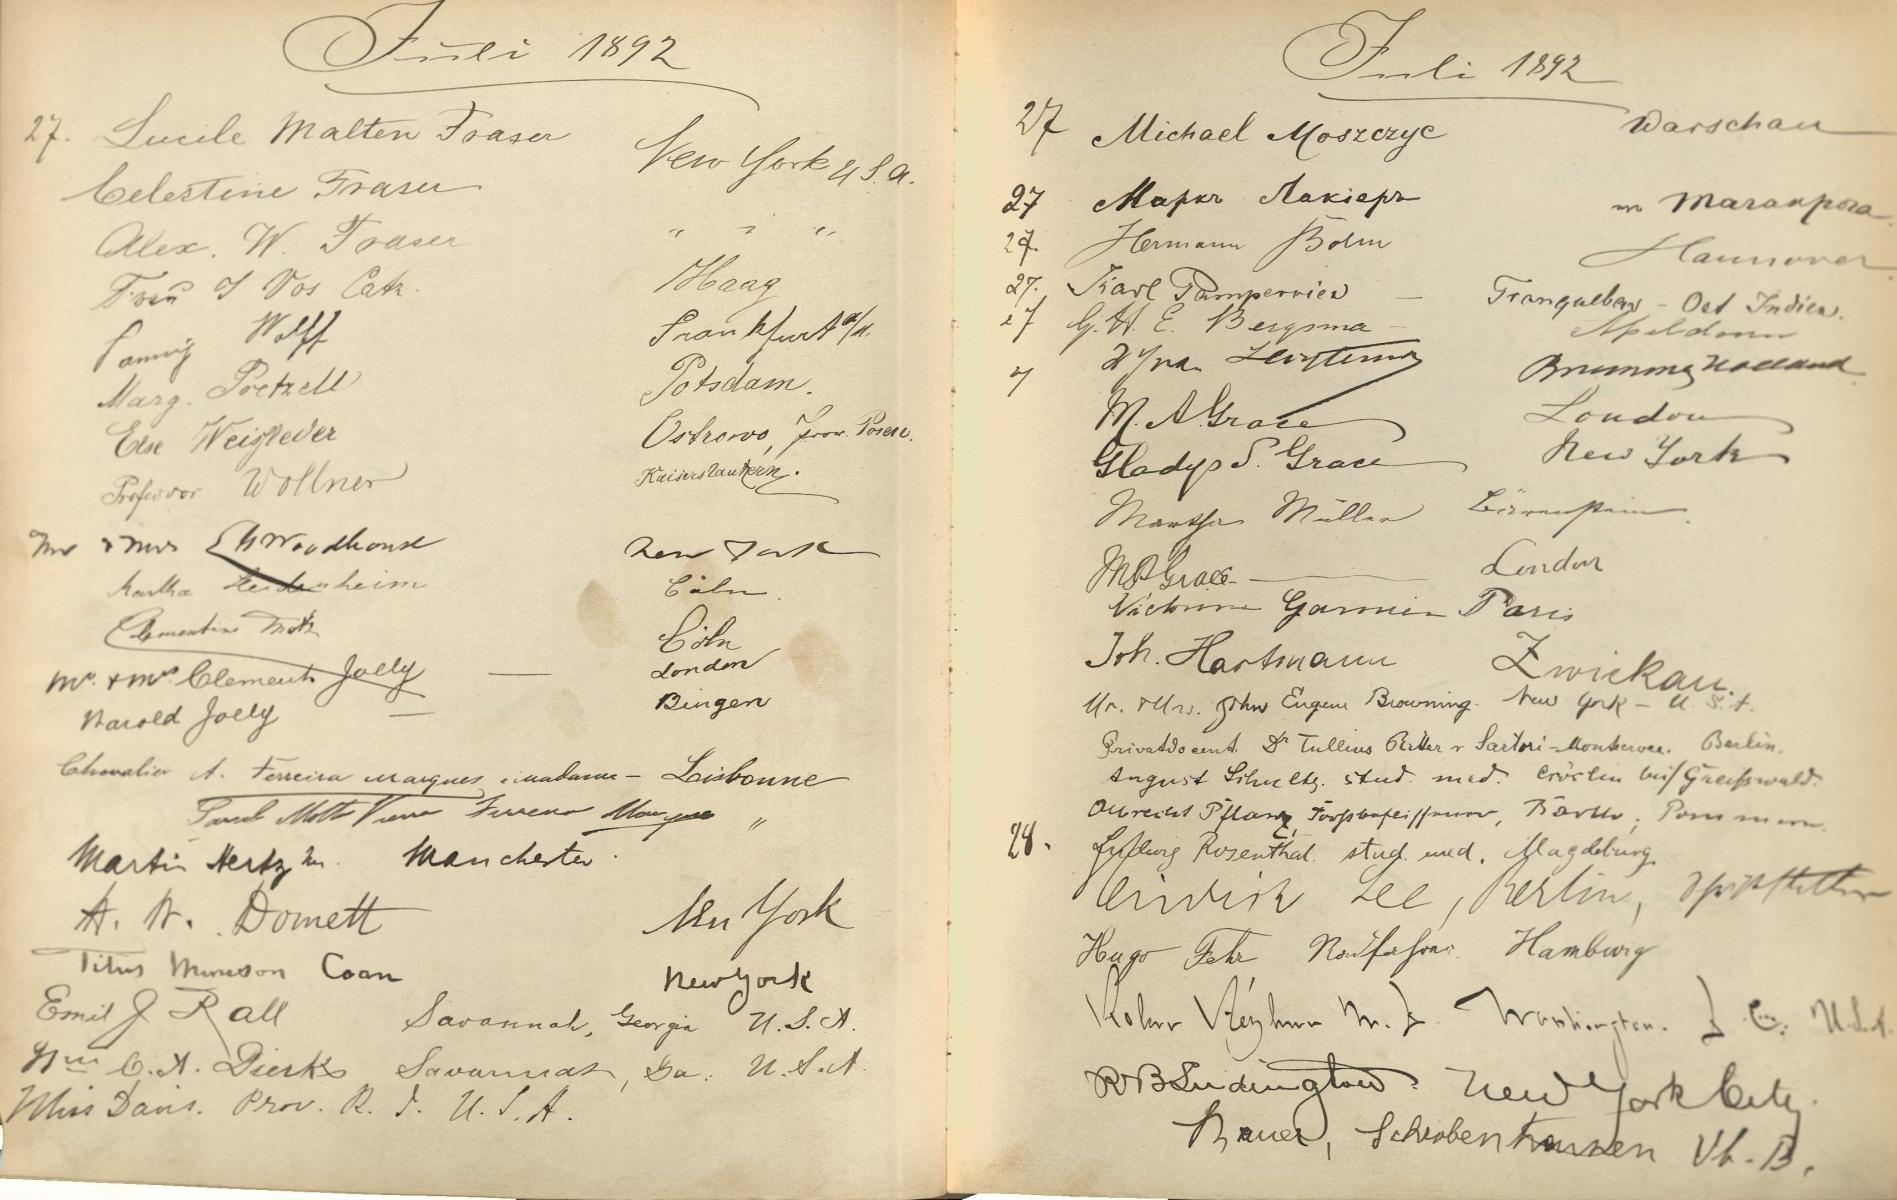 Juli 1892
27. Lucile Malten Fraser New York U.S.A.
Celestine Fraser
Alex. W. Fraser " " "
Frau J Vos Catz. Haag
Fanny Wolff Frankfurt a/M.
Marg. Poetzell Potsdam.
Else Weissleder Ostrowo, Prov. Posen.
Professor Wollner Kaiserslautern.
Mr & Mrs Woodhouse New York
Martha Heidenheim Cöln
Clementine Cöln
Mr. & Mrs Clement Jolly — London
Harold Jolly — Bingen
Chevalier A. Ferreira Marques, & madame – Lisbonne
"
Martin Hertz Manchester.
A. W. Domett New York
Titus Munson Coan New York
Emil J Rall Savannah, Georgia U.S.A.
Wm C. A. Dierks Savannah, Ga. U.S.A.
Miss Davis. Prov. R. I. U.S.A.
Juli 1892
27 Michael Moszczyc Warschau
27 Маркъ Лакіеръ
27. Hermann Bohm Hannover
27. Karl Pamperrien — Tranquebar – Ost Indien.
27 G. H. E. Bergsma — Apeldoorn
Brummen Holland
M. A. Grace London
Gladys S. Grace New York
Martha Müller
M P Grace — London
Garnier Paris
Joh. Hartmann Zwickau.
Mr. & Mrs. John Eugene Browning. New York – U.S.A.
Privatdocent Dr Tullius Ritter v Sartori-Montecroce. Berlin.
August Schultz. stud. med. Cröslin bei Greifswald.
Albrecht Pflanz, Barth, Pommern.
28. Rosenthal. stud. med. Magdeburg
Lee, Berlin,
Hugo Fehr Hamburg
M. D. Washington. D. C. U.S.A.
R B Ludington. New York City.
Bauer, Schrobenhausen Ob. B.